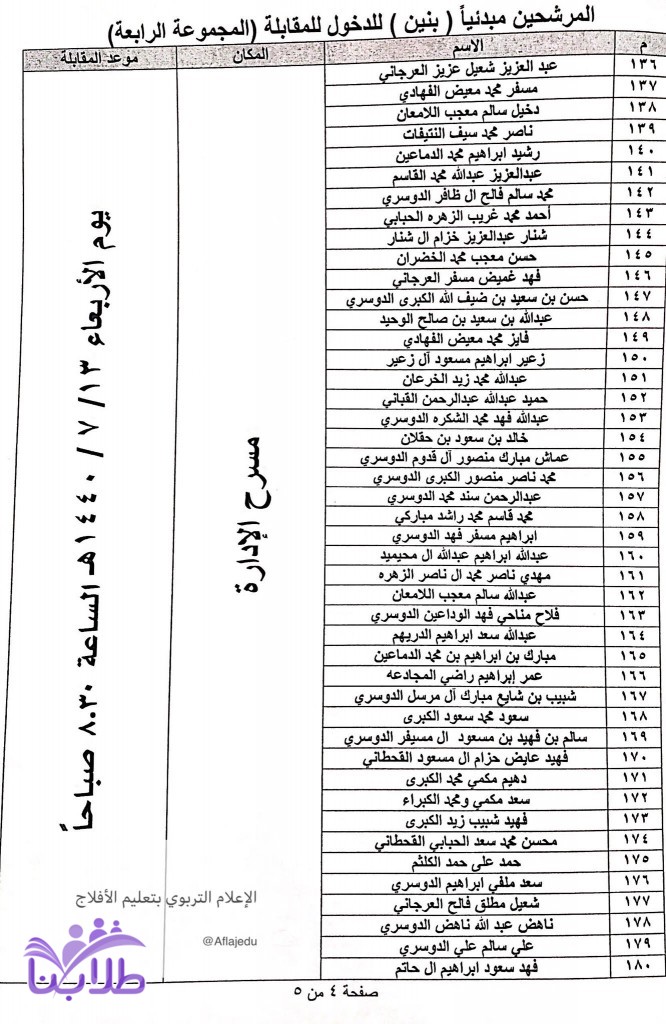 المرشحين مبدئياً ( بنين ) للدخول للمقابلة (المجموعة الرابعة)
م الإسم المكان موعد المقابلة
١٣٦ عبد العزيز شعيل عزيز العرجاني
١٣٧ مسفر محمد معيض الفهادي
١٣٨ دخيل سالم معجب اللامعان
١٣٩ ناصر محمد سيف النتيفات
١٤٠ رشيد ابراهيم محمد الدماعين
١٤١ عبدالعزيز عبدالله محمد القاسم
١٤٢ محمد سالم فالح ال ظافر الدوسري
١٤٣ أحمد محمد غريب الزهره الحبابي
١٤٤ شنار عبدالعزيز خزام ال شنار
١٤٥ حسن معجب محمد الخضران
١٤٦ فهد غميض مسفر العرجاني
١٤٧ حسن بن سعيد بن ضيف الله الكبرى الدوسري
١٤٨ عبدالله بن سعيد بن صالح الوحيد
١٤٩ فايز محمد معيض الفهادي
١٥٠ زعير ابراهيم مسعود آل زعير
١٥١ عبدالله محمد زيد الخرعان
١٥٢ حميد عبدالله عبدالرحمن القباني
١٥٣ عبدالله فهد محمد الشكره الدوسري
١٥٤ خالد بن سعود بن حقلان
١٥٥ عماش مبارك منصور آل قدوم الدوسري
١٥٦ محمد ناصر منصور الكبرى الدوسري
١٥٧ عبدالرحمن سند محمد الدوسري
١٥٨ محمد قاسم محمد راشد مباركي
١٥٩ ابراهيم مسفر فهد الدوسري
١٦٠ عبدالله ابراهيم عبدالله ال محيميد
١٦١ مهدي ناصر محمد ال ناصر الزهره
١٦٢ عبدالله سالم معجب اللامعان
١٦٣ فلاح مناحي فهد الوداعين الدوسري
١٦٤ عبدالله سعد ابراهيم الدريهم
١٦٥ مبارك بن ابراهيم بن محمد الدماعين
١٦٦ عمر إبراهيم راضي المجادعه
١٦٧ شبيب بن شايع مبارك آل مرسل الدوسري
١٦٨ سعود محمد سعود الكبرى
١٦٩ سالم بن فهيد بن مسعود ال مسيفر الدوسري
١٧٠ فهيد عايض حزام ال مسعود القحطاني
١٧١ دهيم مكمي محمد الكبرى
١٧٢ سعد مكمي ومحمد الكبراء
١٧٣ فهيد شبيب زيد الكبرى
١٧٤ محسن محمد سعد الحبابي القحطاني
١٧٥ حمد علي حمد الكلثم
١٧٦ سعد ملفي ابراهيم الدوسري
١٧٧ شعيل مطلق فالح العرجاني
١٧٨ ناهض عبد الله ناهض الدوسري
١٧٩ علي سالم علي الدوسري
١٨٠ فهد سعود ابراهيم ال حاتم
مسرح الإدارة
يوم الأربعاء ١٣ / ٧ / ١٤٤٠هـ الساعة ٨.٣٠ صباحاً
الإعلام التربوي بتعليم الأفلاج
@Aflajedu
طلابنا
صفحة ٤ من ٥